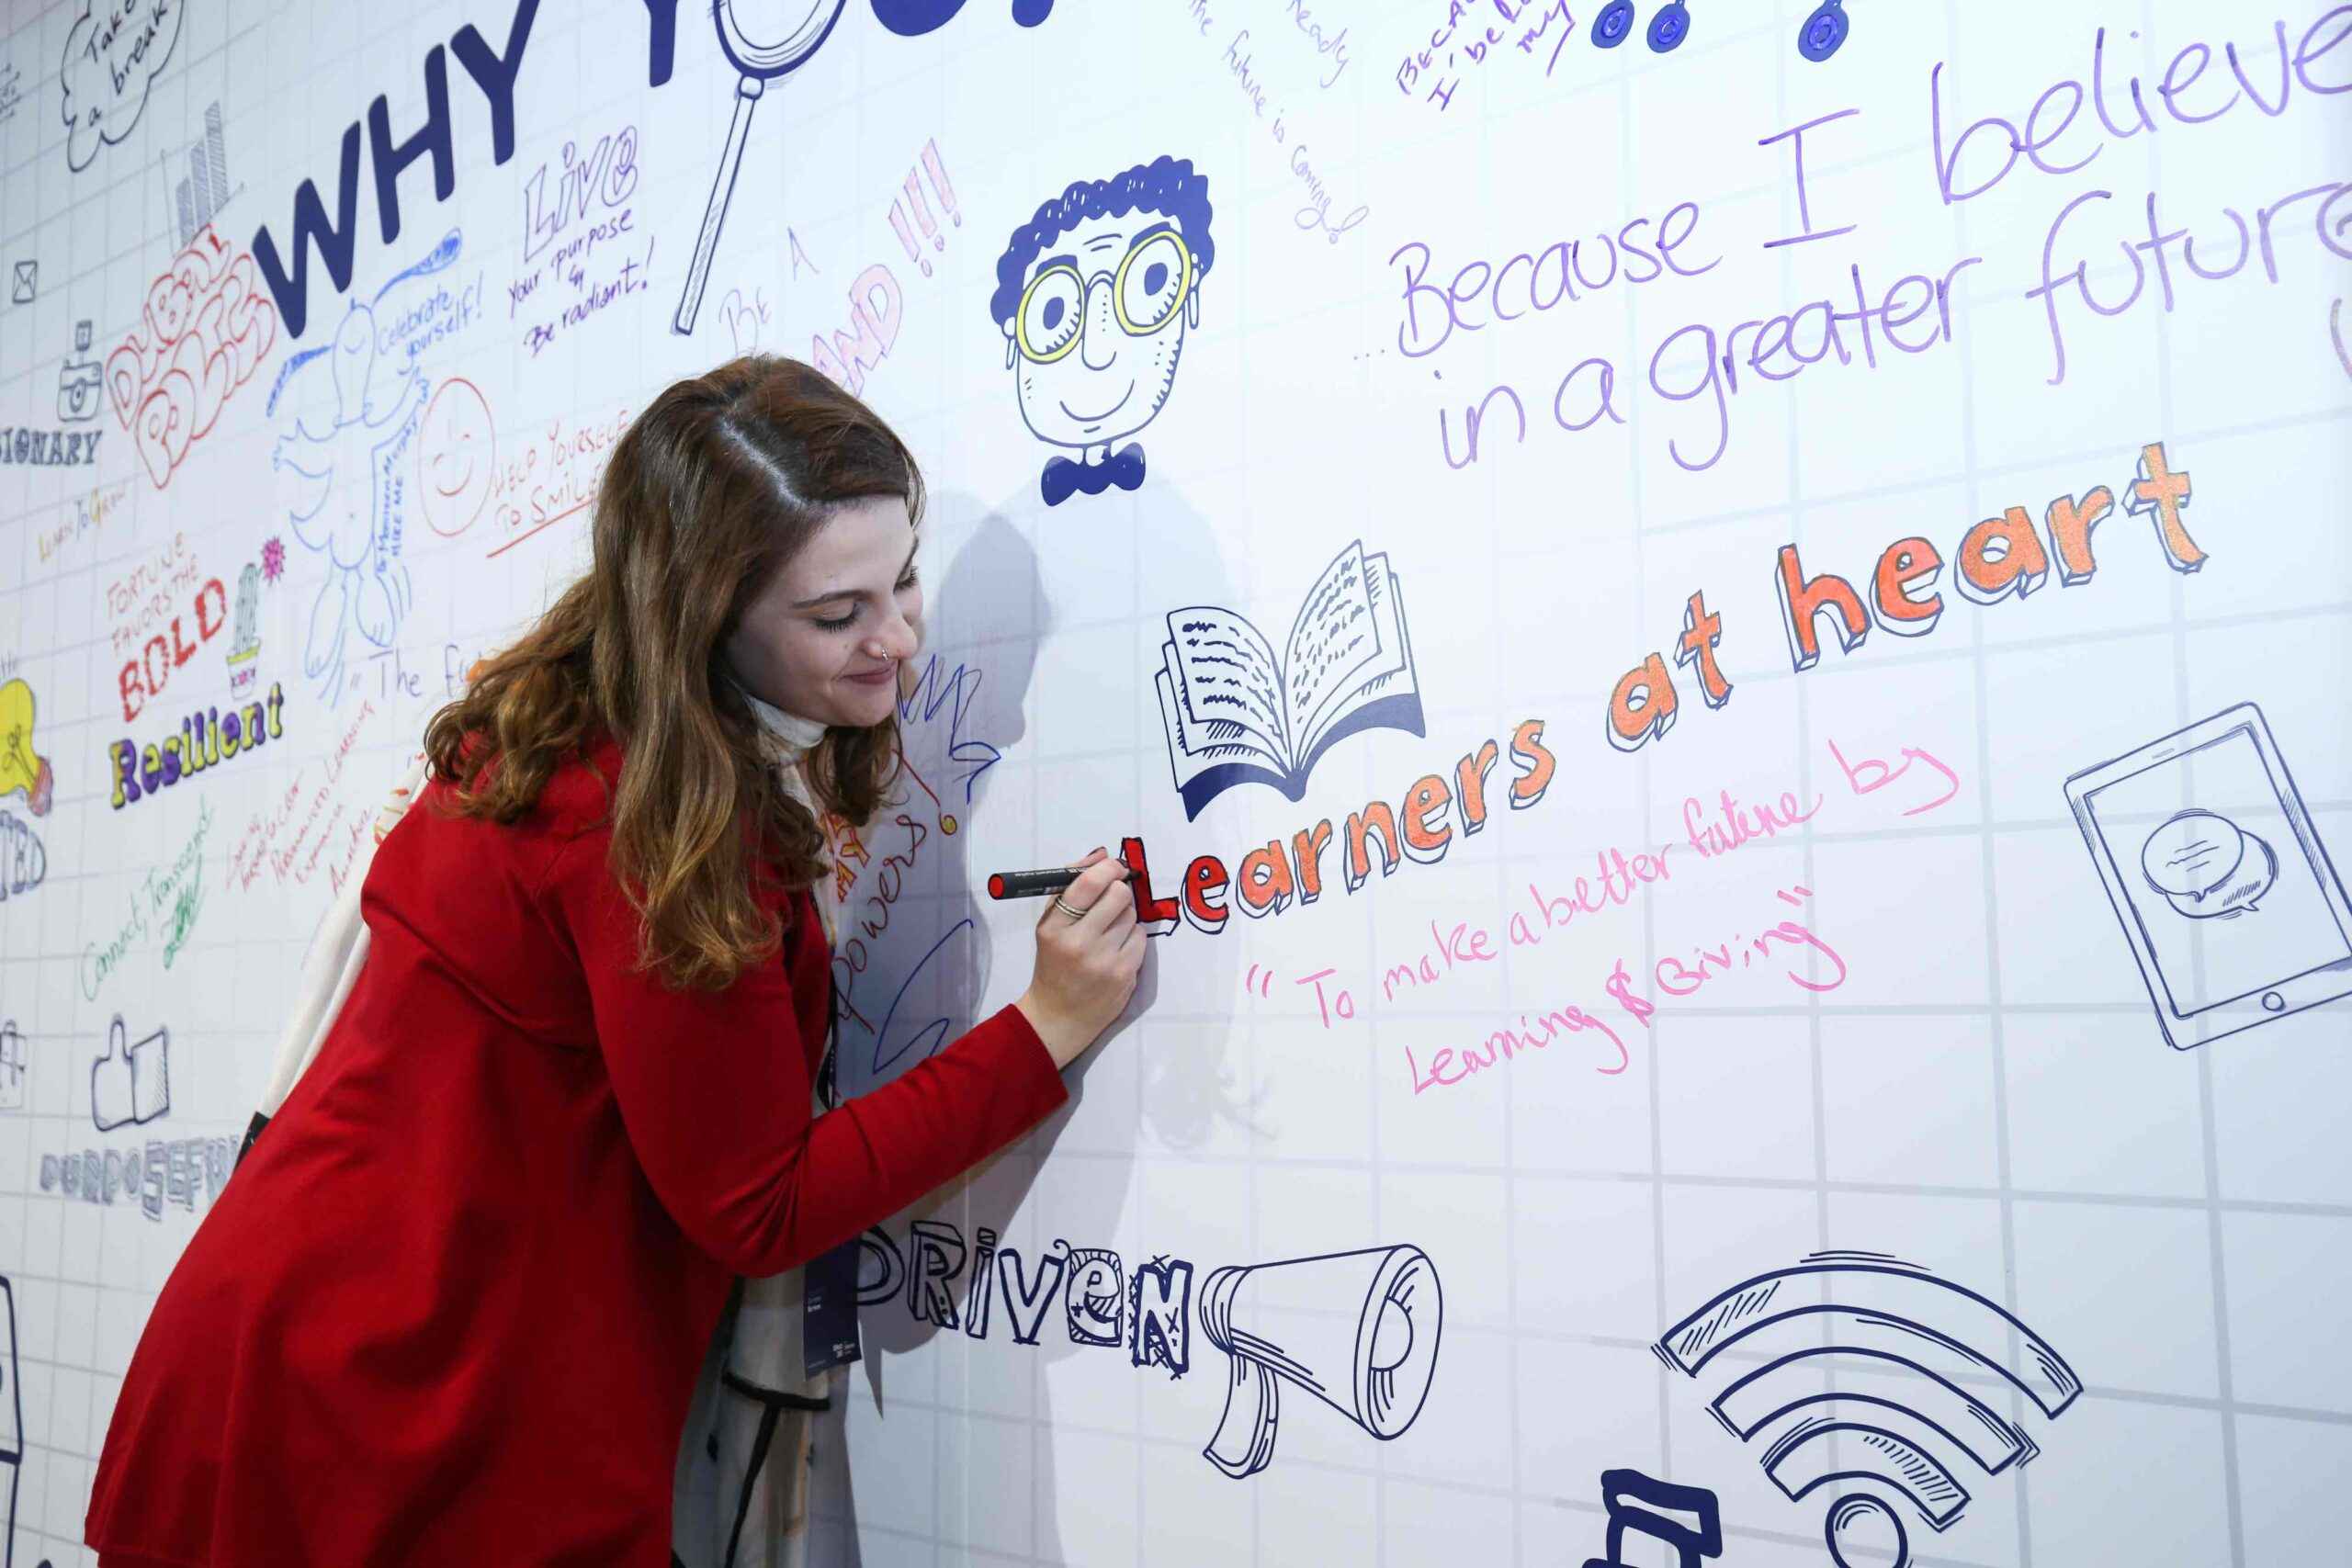 Take
a
break
WHY YOU?
LIVE
your purpose
&
Be radiant!
the future is coming
ready
BECAUSE
I be
my
...Because I believe
in a greater future
BE A
!!!
DUBAI
Celebrate
yourself!
HIRE ME
HELP YOURSELF
TO SMILE
LEARN TO GROW
FORTUNE
FAVORS THE
BOLD
Resilient
"The
Learners at heart
"To make a better future by
Learning & Giving"
Connect, Transcend
PERSONALIZED LEARNING
powers
PURPOSEFUL
DRIVEN